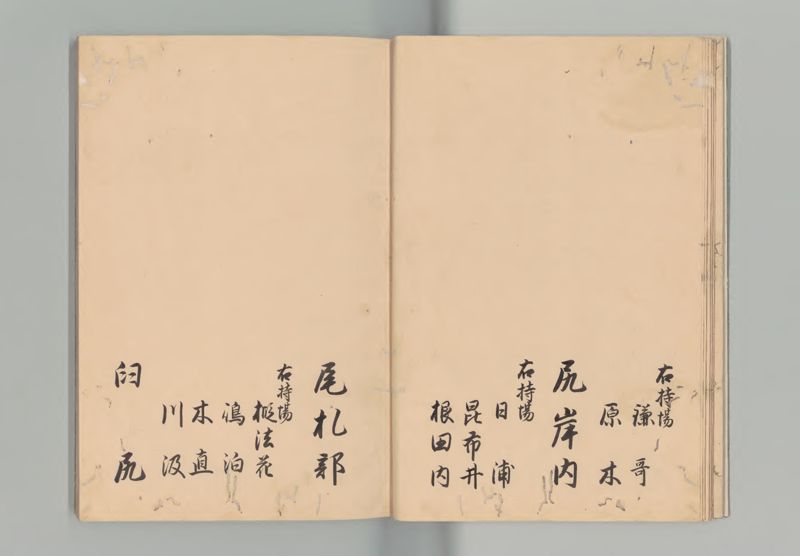 右持場
鎌哥
原木
尻岸内
右持場
日浦
昆布井
根田内
尾札部
右持場
椴法花
鴻泊
木直
川汲
臼尻